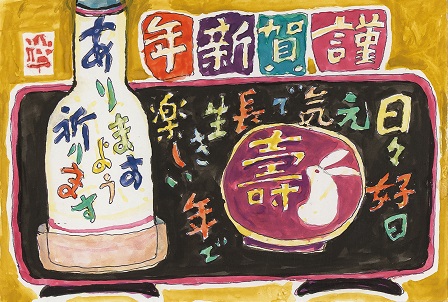 謹賀新年
日々好日
元気で長生き
楽しい年で
ありますよう
祈ります
壽